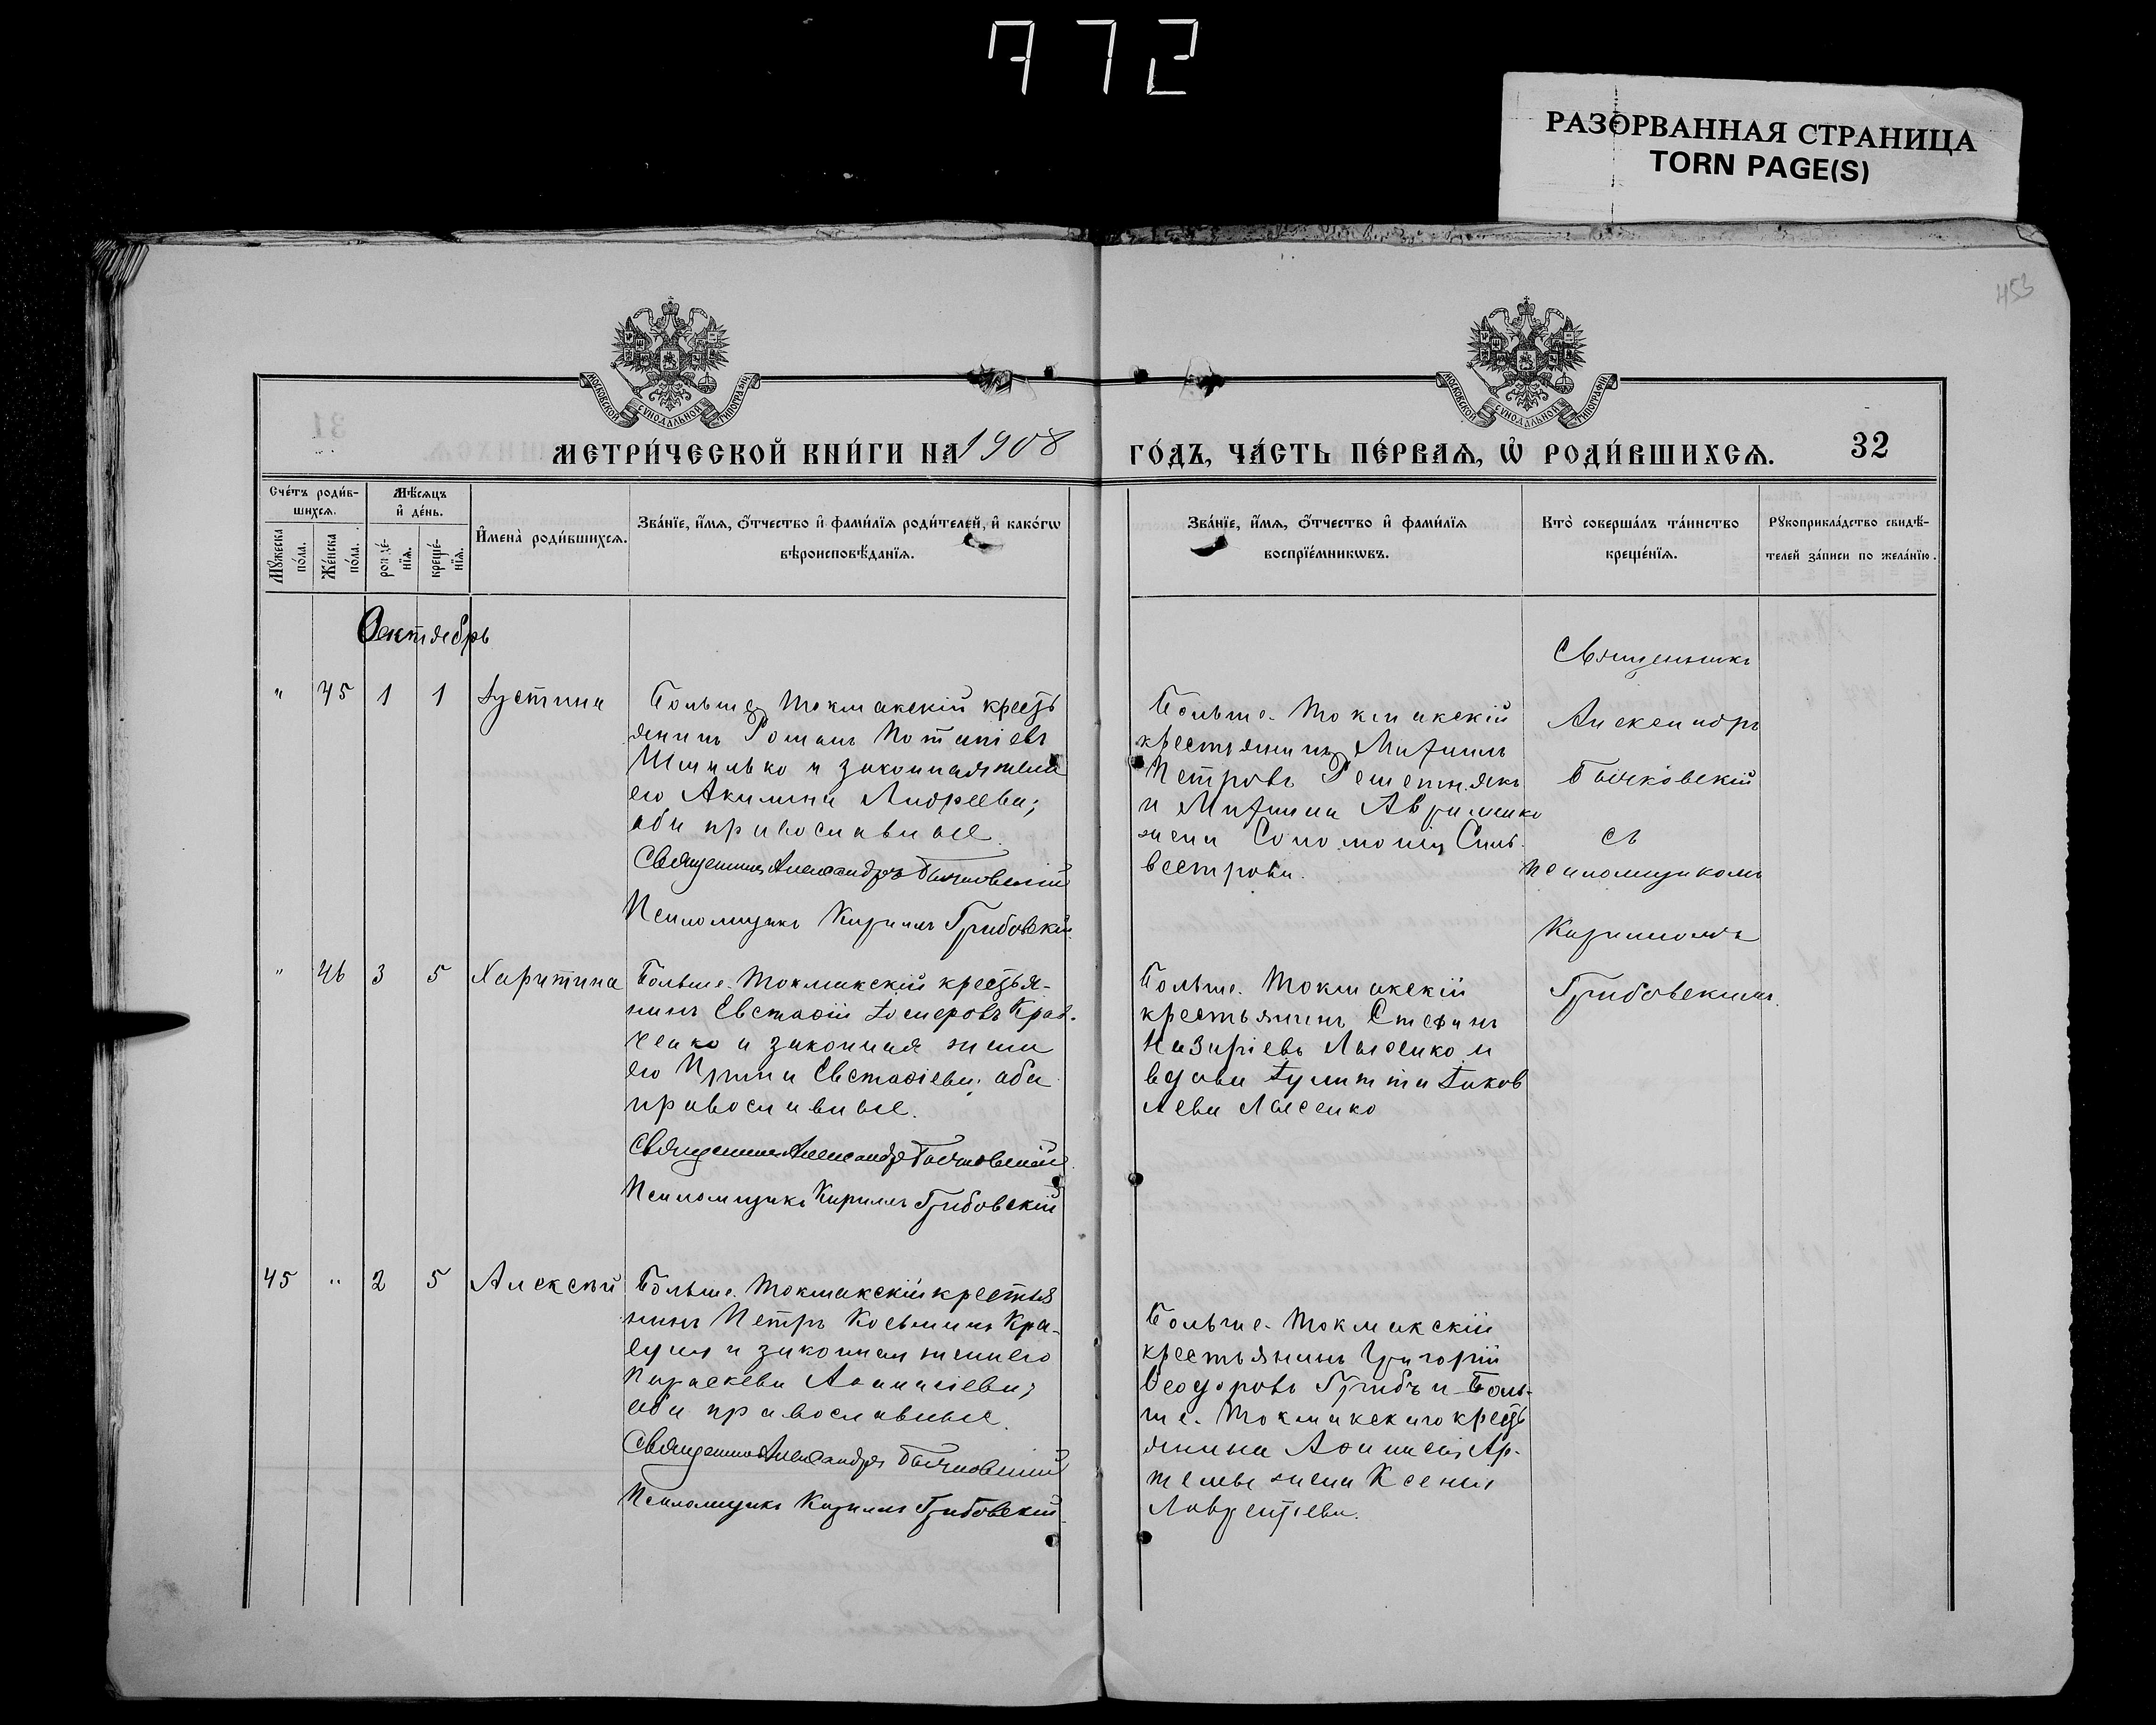 772
РАЗОРВАННАЯ СТРАНИЦА
TORN PAGE(S)
453
МОСКОВСКОЙ СѴНОДАЛЬНОЙ ТИПОГРАФІИ
МОСКОВСКОЙ СѴНОДАЛЬНОЙ ТИПОГРАФІИ
МЕТРИ́ЧЕСКОЙ КНИ́ГИ НА 1908
ГО́ДЪ, ЧА́СТЬ ПЕ́РВАѦ, Ѡ҆ РОДИ́ВШИХСѦ. 32
Сче́тъ роди́в-
шихсѧ.
Мꙋ́жеска по́ла.
Же́нска по́ла.
Мѣ́сѧцъ
и҆ де́нь.
рожде́-
нїѧ.
креще́-
нїѧ.
И҆мена̀ роди́вшихсѧ.
Зва́нїе, и҆́мѧ, ѻ҆́тчество и҆ фами́лїѧ роди́телей, и҆ како́гѡ
вѣроисповѣ́данїѧ.
Зва́нїе, и҆́мѧ, ѻ҆́тчество и҆ фами́лїѧ
воспрїе́мникѡвъ.
Кто̀ соверша́лъ та́инство
креще́нїѧ.
Рꙋкоприкла́дство свидѣ́-
телей за́писи по жела́нїю.
Октябрь
" 45 1 1 Іустина
Больше Токмакскій кресть
янинъ Романъ Потапіевъ
и законная жена
его Акилина Андреева;
оба православные.
Священникъ Александръ Бычковскій
Псаломщикъ Кириллъ Грибовскій.
Больше-Токмакскій
крестьянинъ Михаилъ
Петровъ Решетнякъ
и Михаила Авраменко
жена Соломонія Силь-
вестрова.
Священникъ
Александръ
Бычковскій
съ
псаломщикомъ
Кирилломъ
Грибовскимъ.
" 46 3 5 Харитина
Больше-Токмакскій крестья-
нинъ Евстафій Іосифовъ Крав-
ченко и законная жена
его Ирина Евстафіева; оба
православные.
Священникъ Александръ Бычковскій
Псаломщикъ Кириллъ Грибовскій
Больше-Токмакскій
крестьянинъ Стефанъ
Назаріевъ Лысенко и
вдова Іулитта Іаков
лева Лысенко
45 " 2 5 Алексѣй
Больше-Токмакскій крестья
нинъ Петръ Косьминъ Кра-
и законная жена его
Параскева Афанасіева;
оба православные.
Священникъ Александръ Бычковскій
Псаломщикъ Кириллъ Грибовскій.
Больше-Токмакскій
крестьянинъ Григорій
Ѳеодоровъ Грибъ и Боль-
ше-Токмакскаго кресть
янина Афанасія Ар-
жена Ксенія
Лаврентіева.